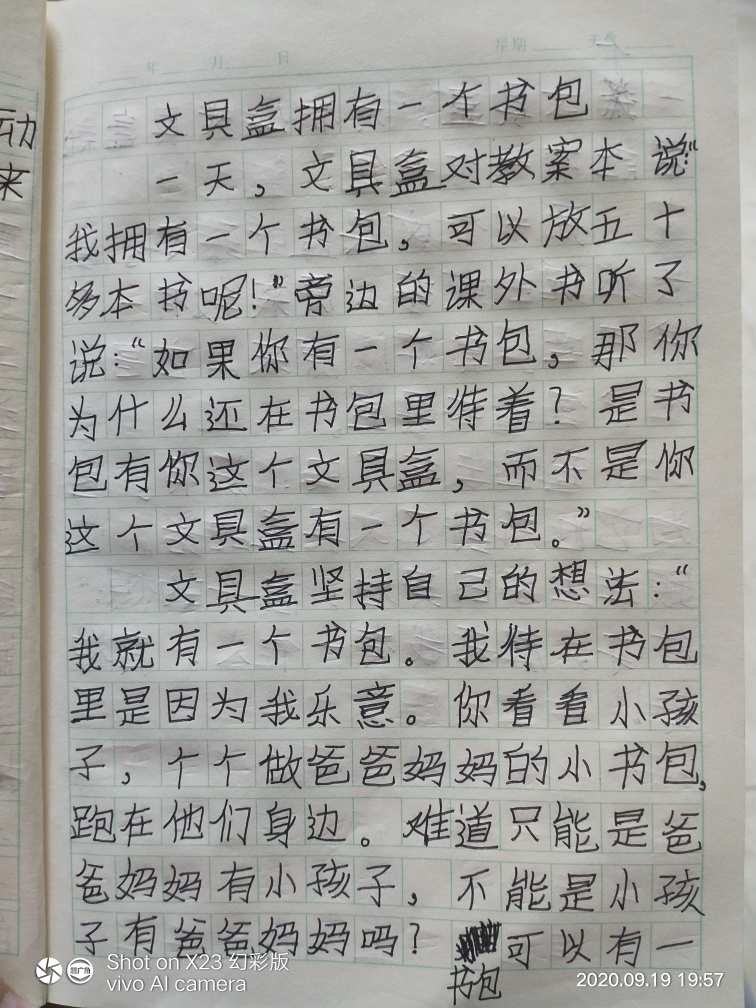 动
来
年 月 日 星期 天气
文具盒拥有一个书包
一天，文具盒对教案本说“
我拥有一个书包，可以放五十
多本书呢！”旁边的课外书听了
说：“如果你有一个书包，那你
为什么还在书包里待着？是书
包有你这个文具盒，而不是你
这个文具盒有一个书包。”
文具盒坚持自己的想法：“
我就有一个书包。我待在书包
里是因为我乐意。你看看小孩
子，个个做爸爸妈妈的小书包，
跑在他们身边。难道只能是爸
爸妈妈有小孩子，不能是小孩
子有爸爸妈妈吗？可以有一
书包
Shot on X23 幻彩版
vivo AI camera
2020.09.19 19:57